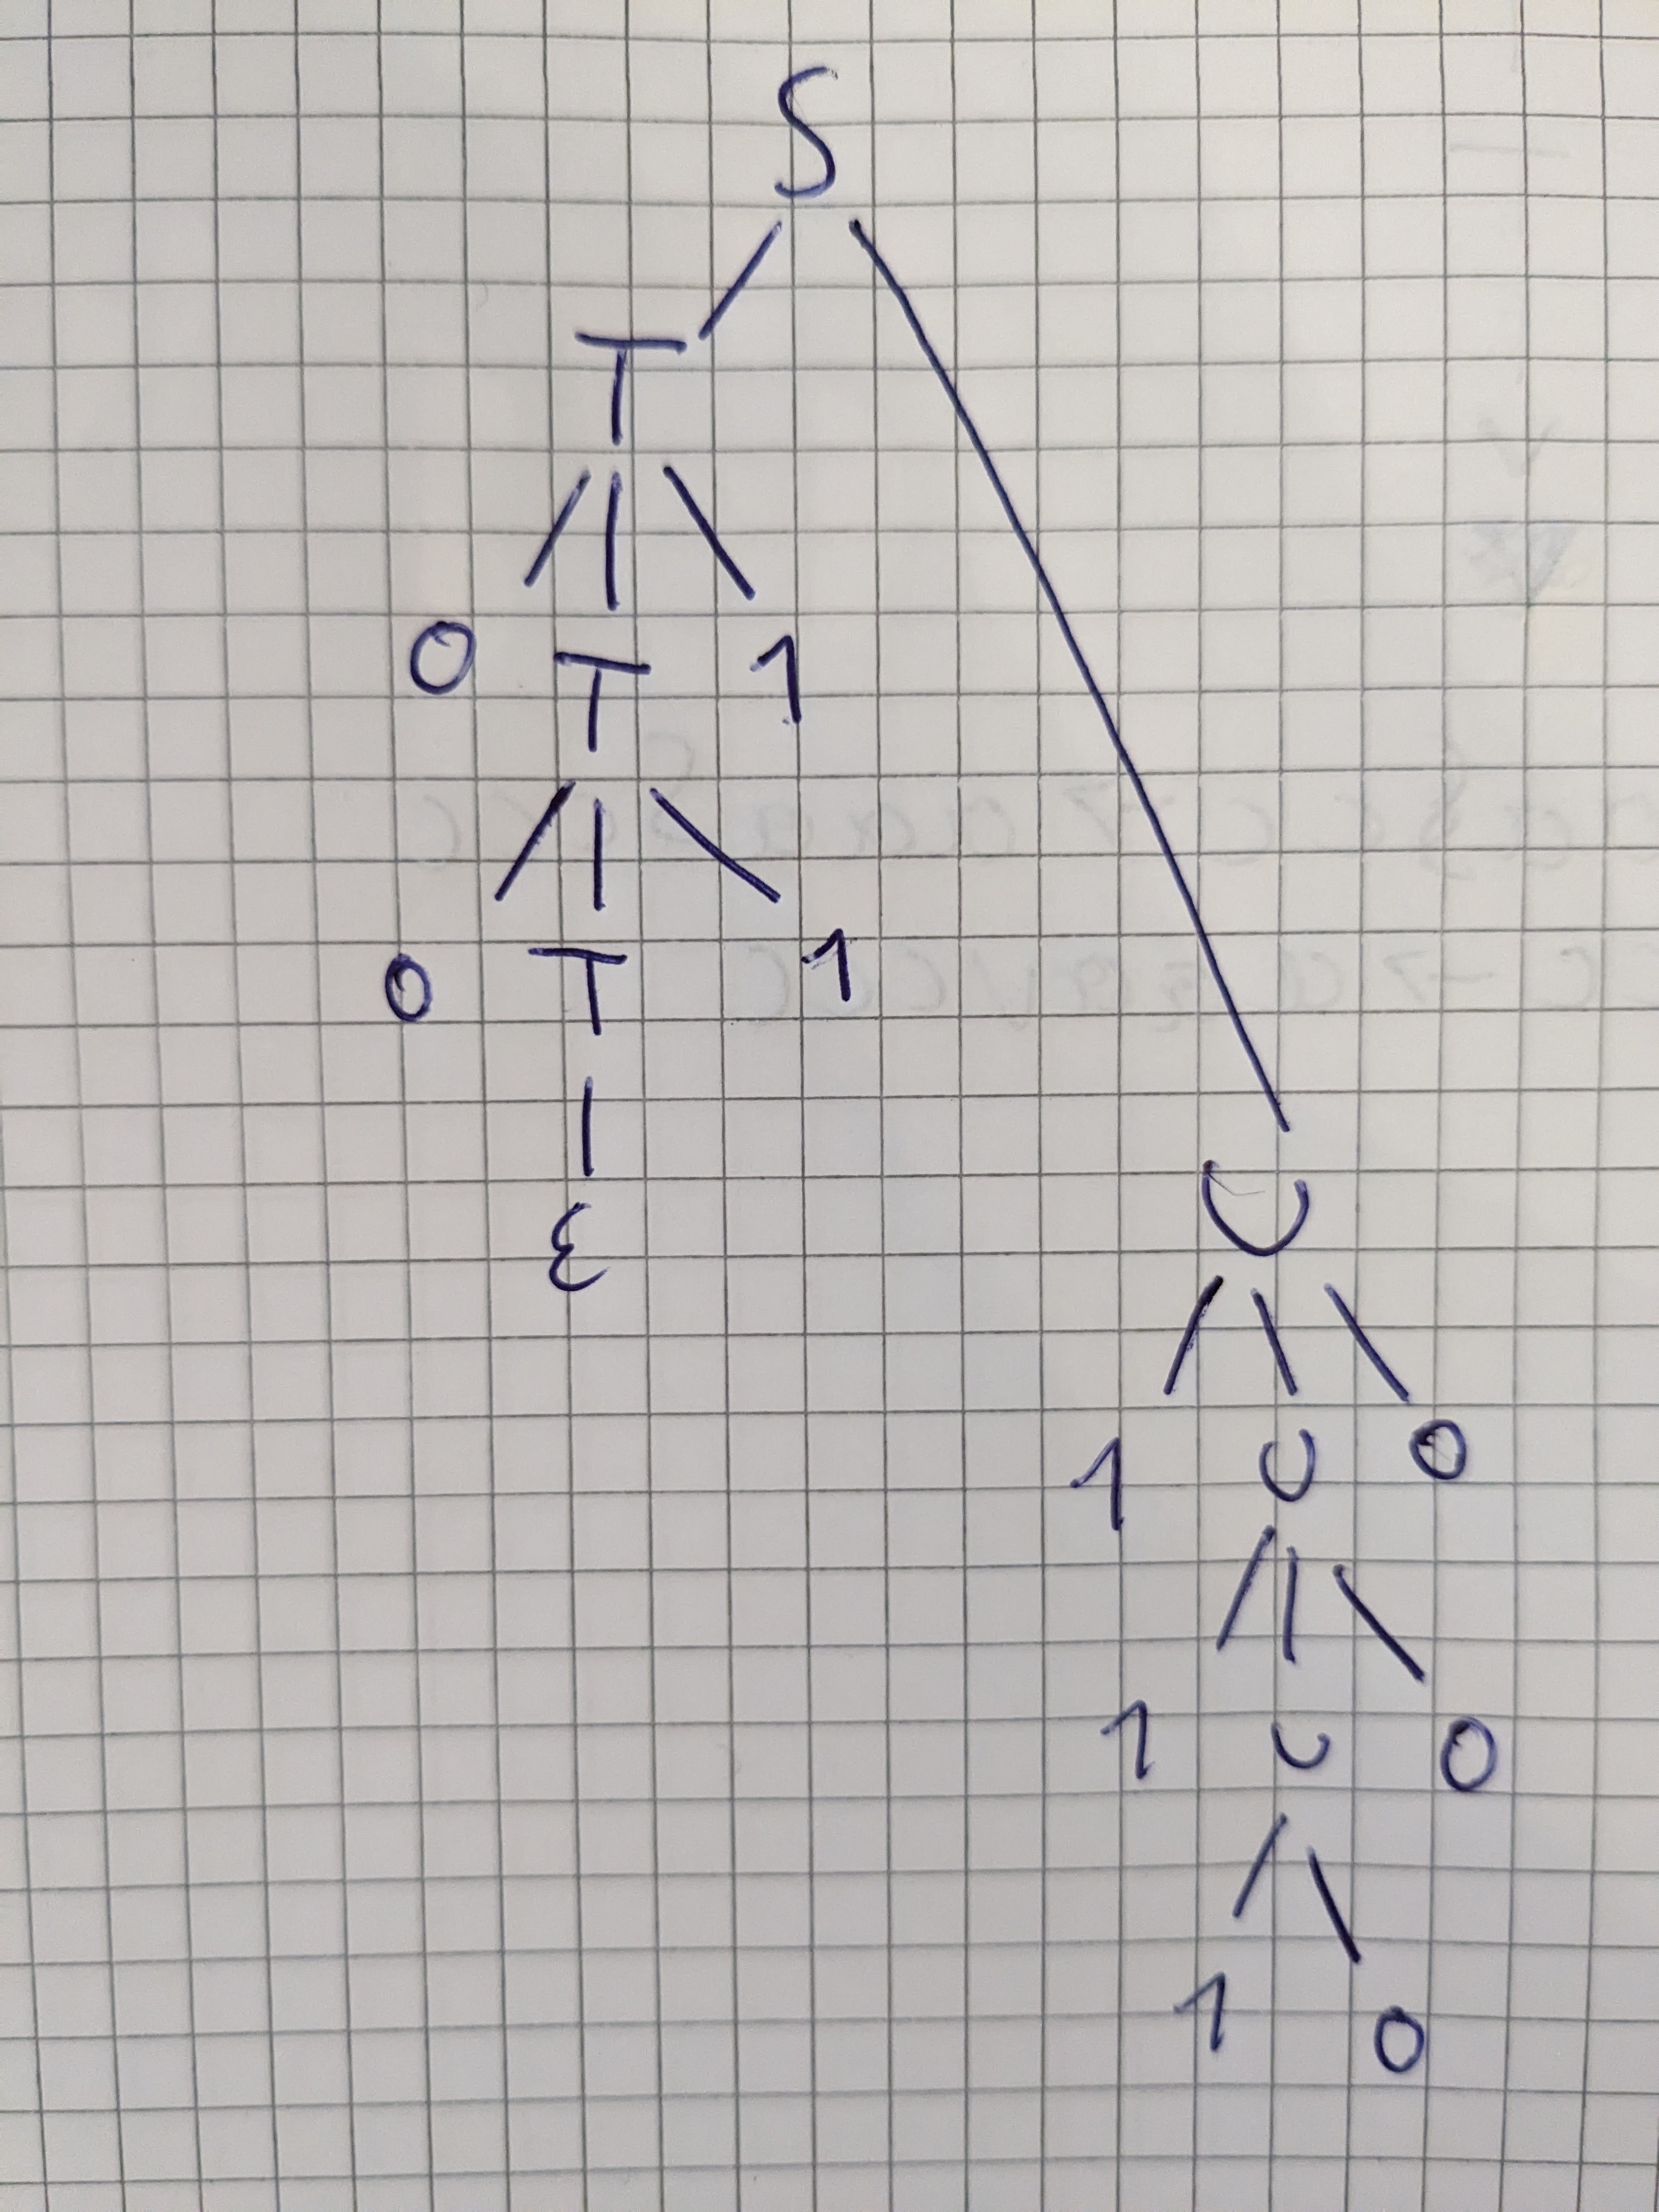 S
T
0 T 1
0 T 1
ε
U
1 U 0
1 U 0
1 0